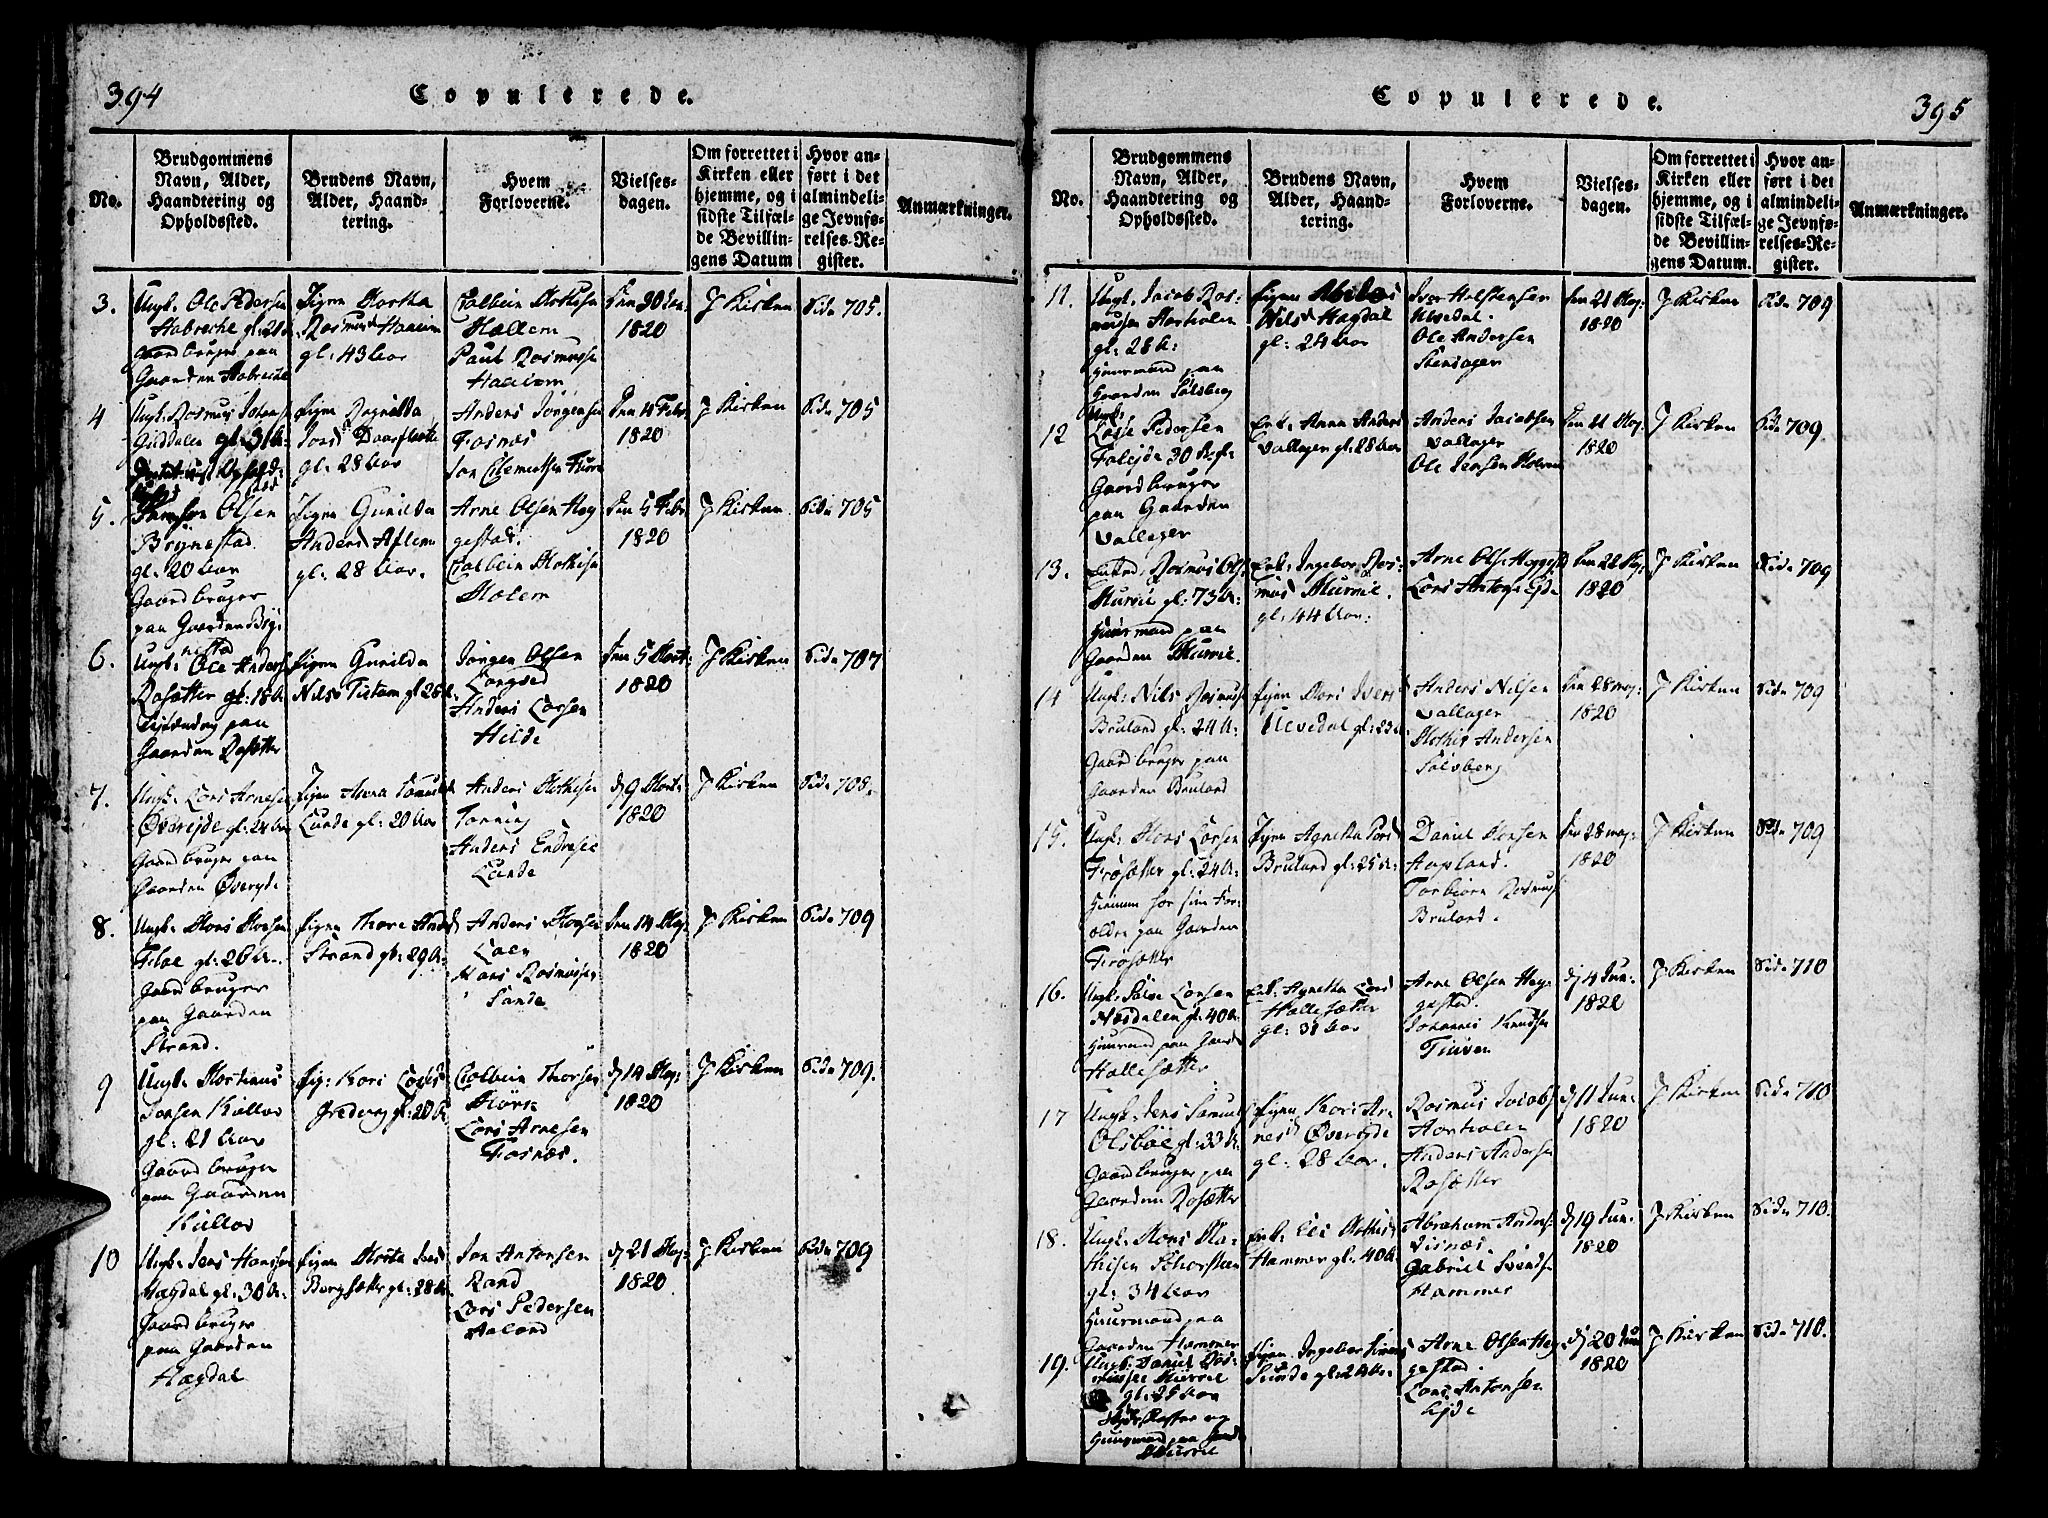 394
Copulerede.
No.
Brudgommens
Navn, Alder,
Haandtering og
Opholdssted.
Brudens Navn,
Alder, Haand-
tering.
Hvem
Forloverne.
Vielses-
dagen.
Om forrettet i
Kirken eller
hjemme, og i
sidste Tilfæl-
de Bevillin-
gens Datum
Hvor an-
ført i det
almindeli-
ge Jevnfø-
relses-Re-
gister.
Anmærkninger.
3.
Ungk: Ole Pedersen
Aabrecke gl: 21
Gaardbruger paa
Gaarden Aabrecke
Pigen Martha
Rasmusd Haaheim
gl: 43 Aar
Colbein Mathisen
Hællem
Paul Rasmussen
Den 30 Jan.
1820
J Kirken
Side 705.
4
Ungk: Rasmus Johans
Gisdalen gl: 31 A:
Pigen Ragnilda
gl: 28 Aar
Anders Jørgensen
Fosnæs
Jon Clemmetsen
Den 4 Febr
1820
J Kirken
Side 705
5.
Olsen
Brynestad
gl: 20 Aar
Gaardbruger
paa Gaarden Bry
nestad
Pigen Gunilda
Anders Aflem
gl: 28 Aar.
Arne Olsen Heg
gestad.
Colbein Mathisen
Holem
Den 5 Febr
1820
J Kirken
Side 705
6.
Ungk: Ole Anders
Rosætter gl: 18 A
paa
Gaarden Rosætter
Pigen Gunilda
Nilsd Tistam gl 26 A.
Jørgen Olsen
Langsed
Anders Larsen
Hilde
Den 5 Mart:
1820
J Kirken
Side 707
7.
Ungk: Lars Arnesen
Øvreejde gl: 24 Aar
Gaardbruger paa
Gaarden Øvreejde
Pigen Anna Samuels
Lunde gl: 20 Aar
Anders Mathisen
Tonning
Anders Endresen
Lunde
d 9 Mart:
1820
J Kirken
Side 708.
8.
Ungk: Mons Monsen
Floe gl: 26 A.
Gaardbruger
paa Gaarden
Strand.
Pigen Thore Andersd
Strand gl: 29 A.
Anders Monsen
Loen
Hans Rasmussen
Sande
Den 14 Maj
1820
J Kirken
Side 709
9
Ungk: Martinus
Jonsen Kullov
gl: 21 Aar
Gaardbruger
paa Gaarden
Kullov
Pig: Kari Larsd
gl: 20 A.
Colbein Thorsen
Mørk
Lars Arnesen
Fosnæs.
d 14 Maj:
1820
J Kirken
Side 709.
10
Ungk: Jens Hansen
Hægdal gl: 30 A.
Gaardbruger
paa Gaarden
Hægdal
Pigen Marta Jonsd
Bergsætter gl: 28 A.
Jon Antonsen
Rand
Lars Pedersen
Aaland
d 21 Maj
1820
J Kirken
Side 709
Copulerede.
395
No.
Brudgommens
Navn, Alder,
Haandtering og
Opholdssted.
Brudens Navn,
Alder, Haand-
tering.
Hvem
Forloverne.
Vielses-
dagen.
Om forrettet i
Kirken eller
hjemme, og i
sidste Tilfæl-
de Bevillin-
gens Datum.
Hvor an-
ført i det
almindeli-
ge Jevnfø-
relses-Re-
gister.
Anmærkninger.
11.
Ungk: Jacob Ras-
mussen Aarholen
gl: 28 A:
Huusmand paa
Gaarden Solsberg
Pigen
Nilsd Hagdal
gl: 24 Aar
Iver Halstensen
Utvedal.
Ole Andersen
Stensager
Den 21 Maj:
1820
J Kirken
Side 709
12
Ungk:
Lasse Pedersen
Faleyde 30
Gaardbruger
paa Gaarden
Vallager
Enk: Anna Anders
Vallager gl: 28 Aar
Anders Jacobsen
Vallager
Ole Jensen Holem
Den 21 Maj
1820
J Kirken
Side 709.
13.
Enkem: Rasmus Ols
Muurie gl: 73 A:
Huusmand paa
Gaarden Muurie.
Enk: Ingebor Ras-
mus Muurie.
gl: 44 Aar.
Arne Olsen Hegges
Lars Antons Ejde
Den 22 Maj:
1820
J Kirken
Side 709
14
Ungk: Nils Rasmus
Bruland gl: 24 A:
Gaardbruger paa
Gaarden Bruland
Pigen Mari Ivers
Utvedal gl: 23 A:
Anders Nilsen
Vallager
Mathis Andersen
Solsberg
Den 28 maj:
1820
J Kirken
Side 709
15.
Ungk: Mons Larsen
Frøsætter gl: 24 A:
Hiemme hos sine For-
ældre paa Gaarden
Frøsætter
Pigen Agnetha Pars
Bruland gl: 25 A:
Daniel Hansen
Aapland.
Torbiørn Rasmus
Bruland.
Den 28 maj:
1820
J Kirken
Side 709
16.
Ungk: Salve Larsen
Næsdalen gl: 40 A:
Huusmand paa Gaard
Hallesætter
Enk: Agnetha Lars
Hallesætter
gl: 31 Aar
Arne Olsen Heg
gestad.
Johannes Knudsen
Tisiven
d 4 Jun:
1820
J Kirken
Side 710
17
Ungk: Jens Samuels
Olsbøe gl: 33 A:
Gaardbruger paa
Gaarden Rosætter
Pigen Kari Ar
nesd Øvreejde
gl: 28 Aar.
Rasmus Jacobs
Aarholen
Anders Andersen
Rosætter
d 11 Jun:
1820
J Kirken
Side 710
18.
Ungk: Mons Ma-
thisen Skorsteen
gl: 34 Aar
Huusmand paa
Gaarden Hammer
Enk: Eli Mathis
Hammer gl: 40 A
Abraham Anders
Visnæs.
Gabriel Svends
Hammer
d 19 Jun:
1820
J Kirken
Side 710.
19.
Ungk: Daniel Ras-
mussen Muurie
gl: 25 Aar
og
Huusmand paa Gaard
Muurie
Pigen Ingebor Iversd
Sunde gl: 24 A:
Arne Olsen Heg
gestad.
Lars Antonsen
Ejde
d 20 Jun
1820
J Kirken
Side 710.